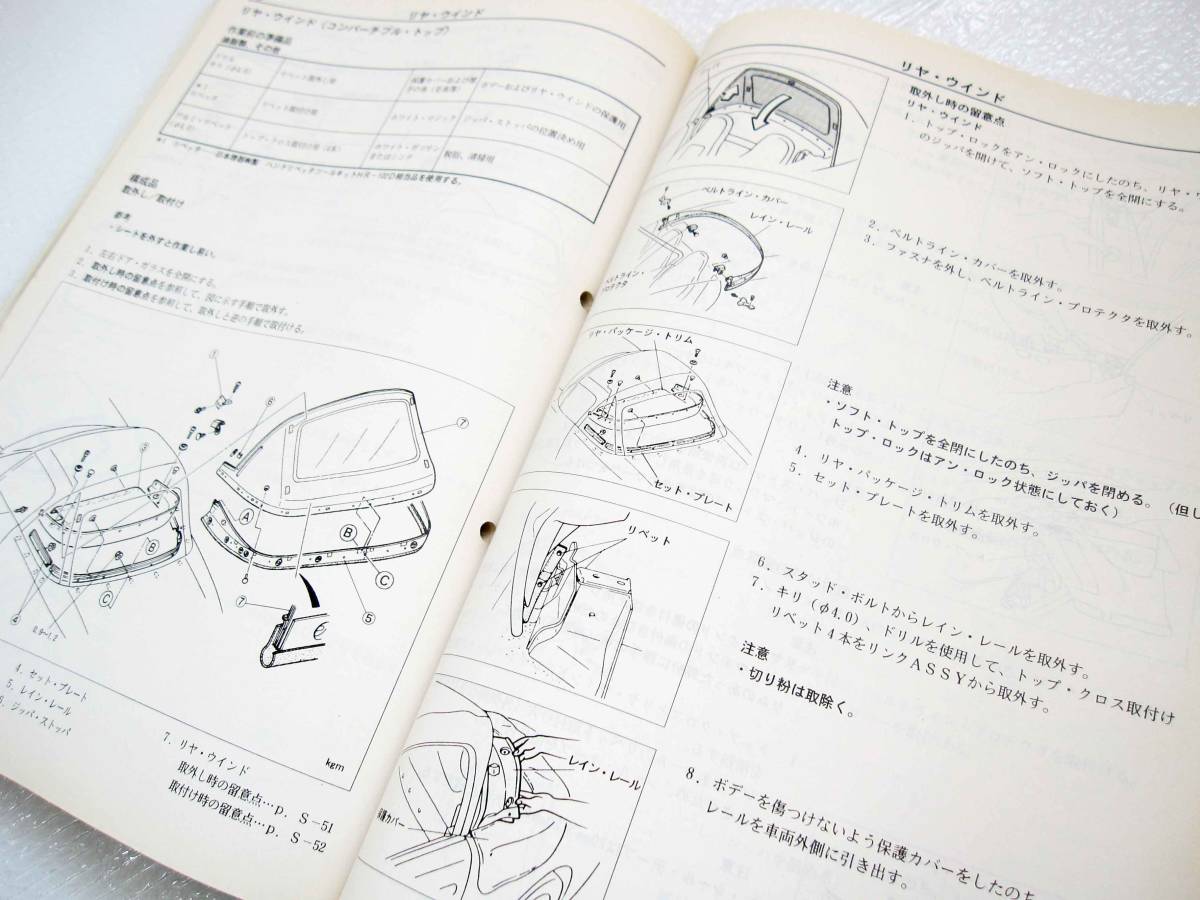 リヤ・ウインド
リヤ・ウインド（コンバーチブル・トップ）
作業前の準備品
油脂類、その他
保護カバーおよび
カラーおよびリヤ・ウインドの保護用
ホワイト・マジック
ジッパ・ストッパの位置決め用
ホワイト・ガソリン
またはシンナ
脱脂、清掃用
構成品
取外し／取付け
参考
・シートを外すと作業し易い。
1. 左右ドア・ガラスを全開にする。
2. 取外し時の留意点を参照して、図に示す手順で取外す。
3. 取付け時の留意点を参照して、取外しと逆の手順で取付ける。
①
⑥
③
⑦
Ⓐ
Ⓑ
Ⓒ
B
Ⓒ
⑦
⑤
4
0.9~1.2
4. セット・プレート
5. レイン・レール
6. ジッパ・ストッパ
7. リヤ・ウインド
取外し時の留意点…p. S−51
取付け時の留意点…p. S−52
kgm
リヤ・ウインド
取外し時の留意点
リヤ・ウインド
1. トップ・ロックをアン・ロックにしたのち、リヤ・
のジッパを開けて、ソフト・トップを全開にする。
ベルトライン・カバー
レイン・レール
ベルトライン・
プロテクタ
2. ベルトライン・カバーを取外す。
3. ファスナを外し、ベルトライン・プロテクタを取外す。
リヤ・パッケージ・トリム
セット・プレート
注意
・ソフト・トップを全閉にしたのち、ジッパを閉める。（但し
トップ・ロックはアン・ロック状態にしておく）
4. リヤ・パッケージ・トリムを取外す。
5. セット・プレートを取外す。
リベット
6. スタッド・ボルトからレイン・レールを取外す。
7. キリ（φ4.0）、ドリルを使用して、トップ・クロス取付け
リベット4本をリンクASSYから取外す。
注意
・切り粉は取除く。
レイン・レール
保護カバー
8. ボデーを傷つけないよう保護カバーをしたのち
レールを車両外側に引き出す。